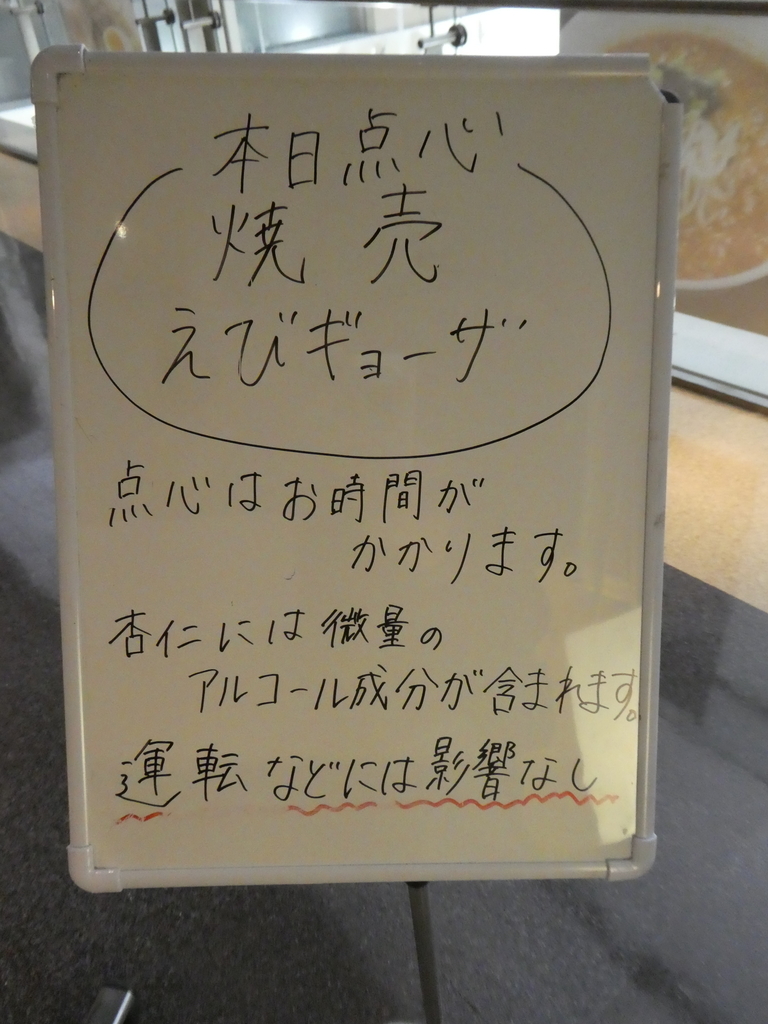 本日点心
焼売
えびギョーザ
点心はお時間が
かかります。
杏仁には微量の
アルコール成分が含まれます。
運転などには影響なし